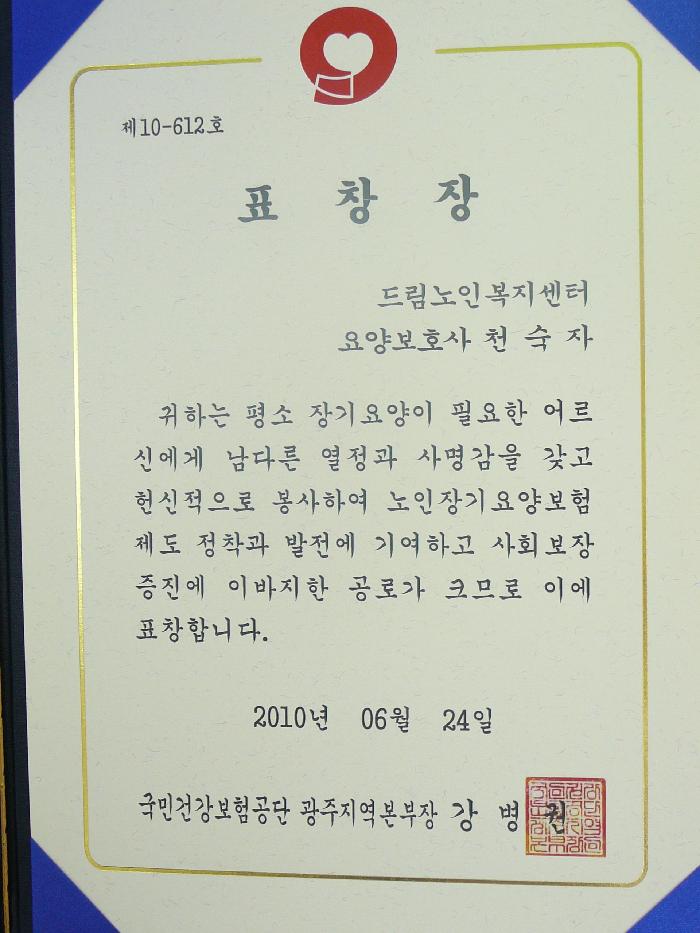 제10-612호
표 창 장
드림노인복지센터
요양보호사 천 숙 자
귀하는 평소 장기요양이 필요한 어르
신에게 남다른 열정과 사명감을 갖고
헌신적으로 봉사하여 노인장기요양보험
제도 정착과 발전에 기여하고 사회보장
증진에 이바지한 공로가 크므로 이에
표창합니다.
2010년 06월 24일
국민건강보험공단 광주지역본부장 강 병 권